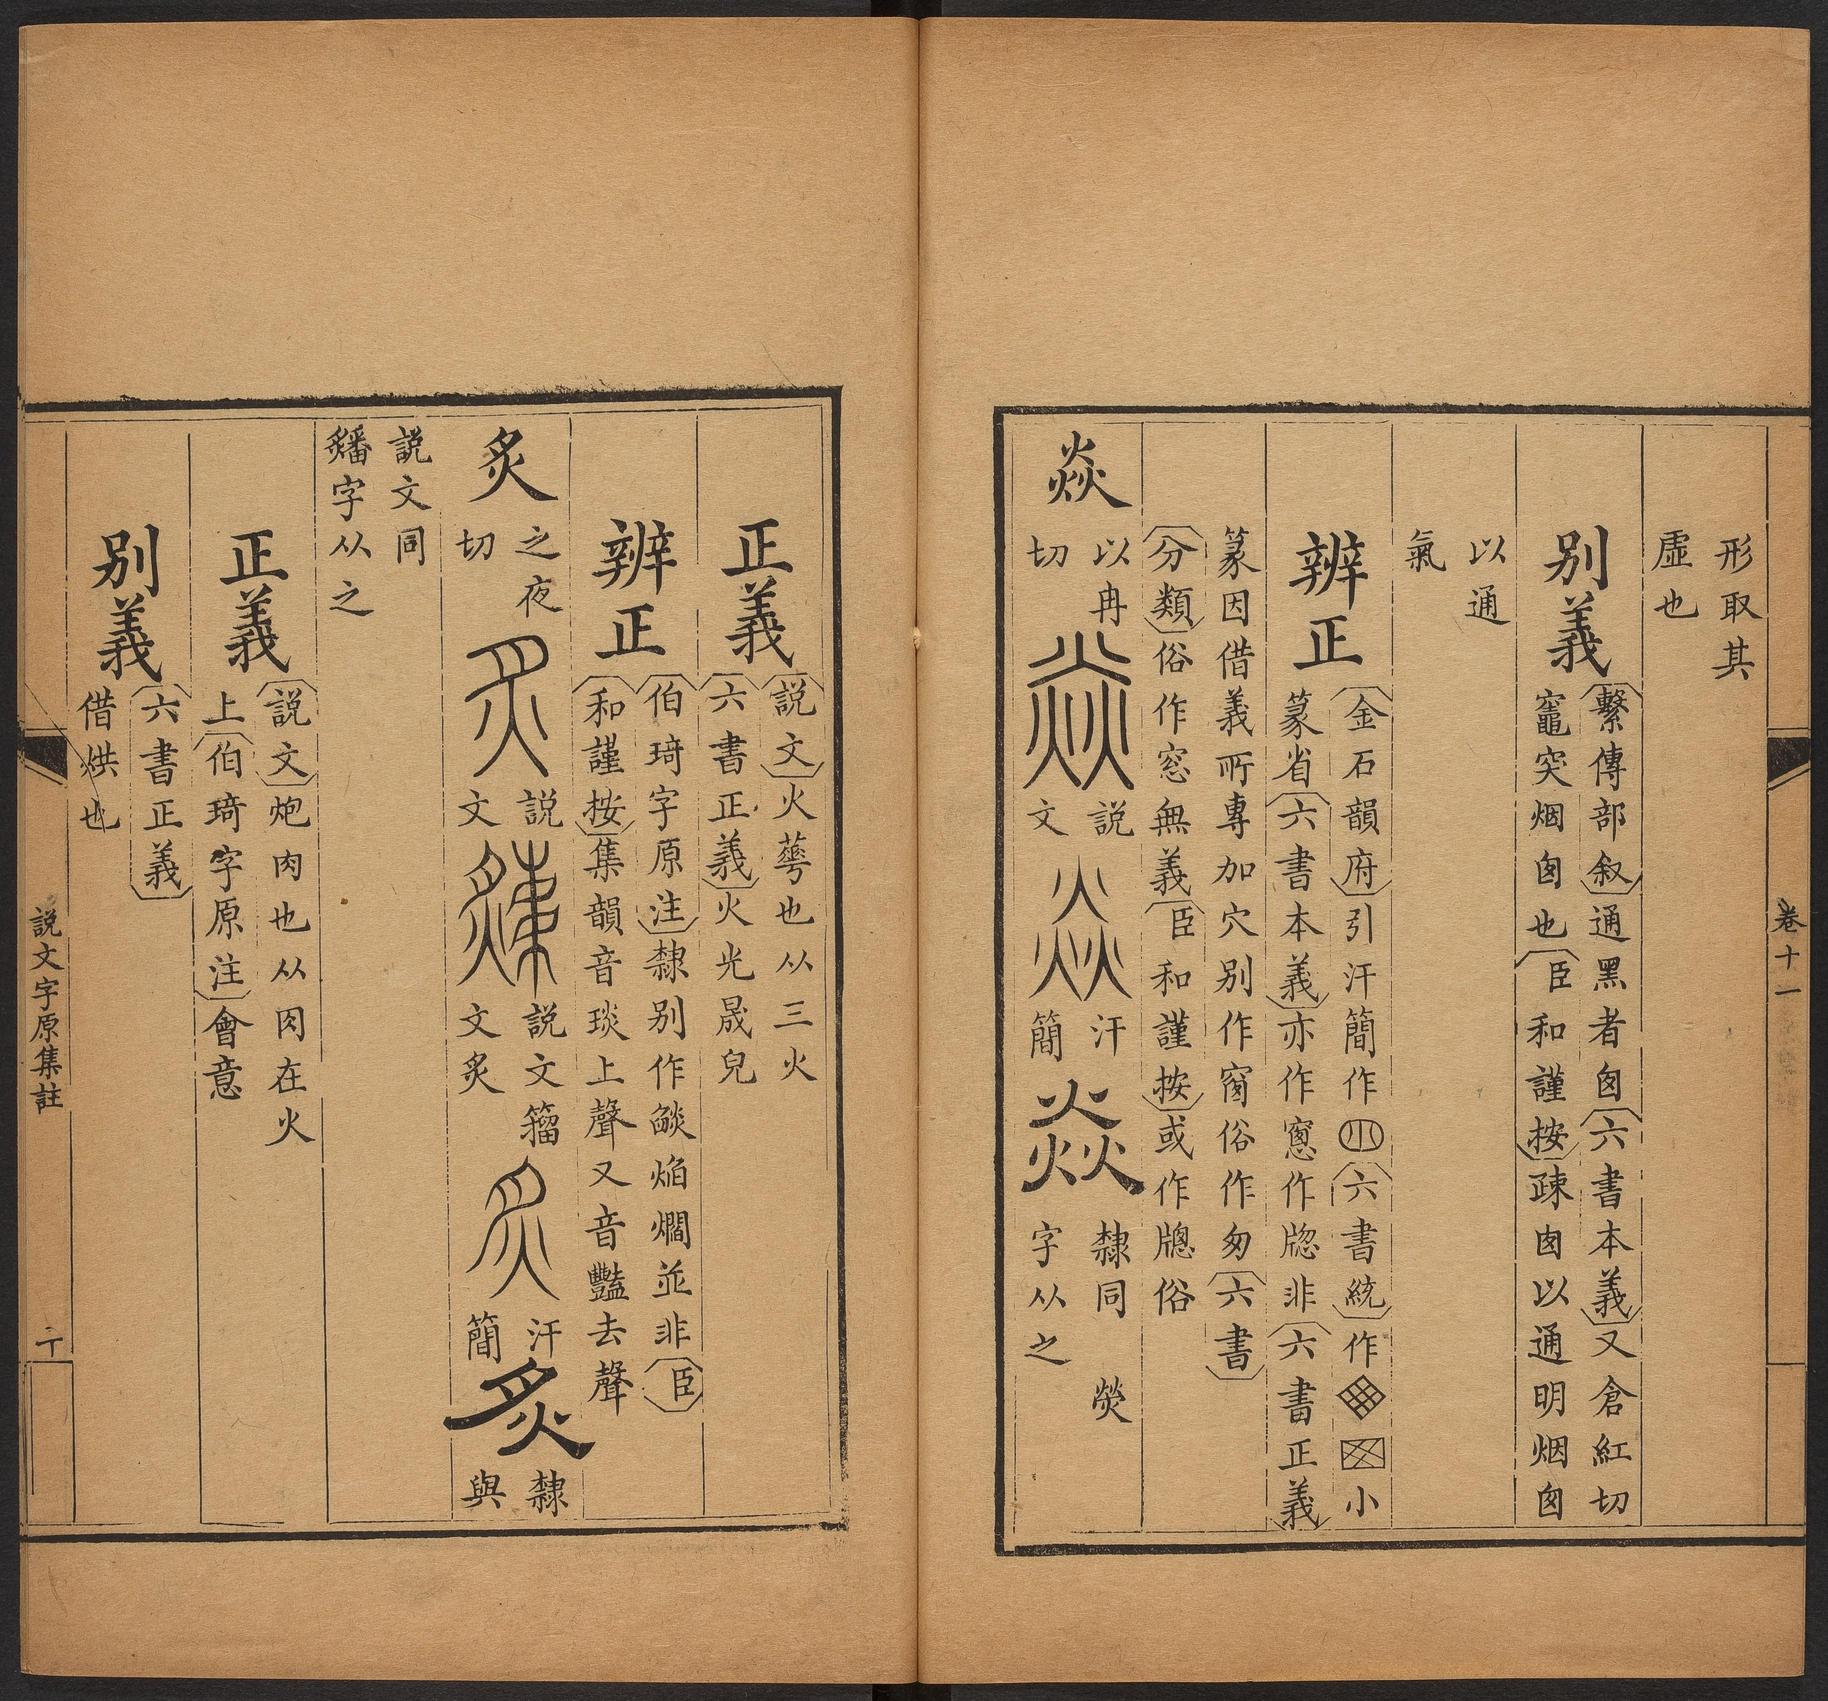 卷十一
形取其
虛也
别義
繫傳部叙通黑者囪六書本義又倉紅切
竈突烟囪也臣和謹按疎囪以通明烟囪
以通
氣
辨正
金石韻府引汗簡作六書統作小
篆省六書本義亦作窻作牎非六書正義
篆因借義所專加穴别作窗俗作匆六書
分類俗作窓無義臣和謹按或作牕俗
焱
以冉
切
説
文
汗
簡
焱
隸同
字从之
熒
正義
説文火蕚也从三火
六書正義火光晟皃
辨正
伯琦字原注隸别作燄焰爓並非臣
和謹按集韻音琰上聲又音豔去聲
炙
之夜
切
説
文
説文籀
文炙
汗
簡
炙
隸
與
説文同
䊩字从之
正義
説文炮肉也从肉在火
上伯琦字原注會意
别義
六書正義
借烘也
説文字原集註